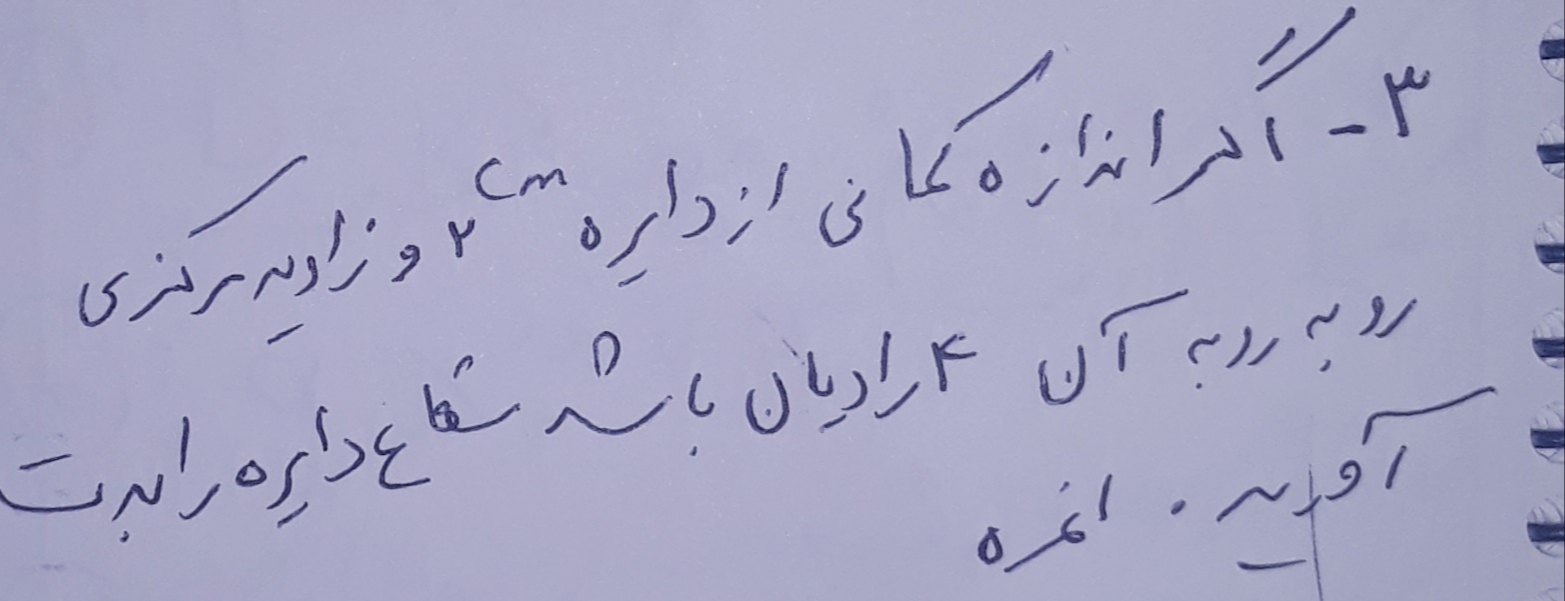 ۳- اگر اندازه کمانی از دایره ۲cm و زاویه مرکزی
روبه روبه آن ۴ رادیان باشد شعاع دایره را بدست
آورید. ۱نمره